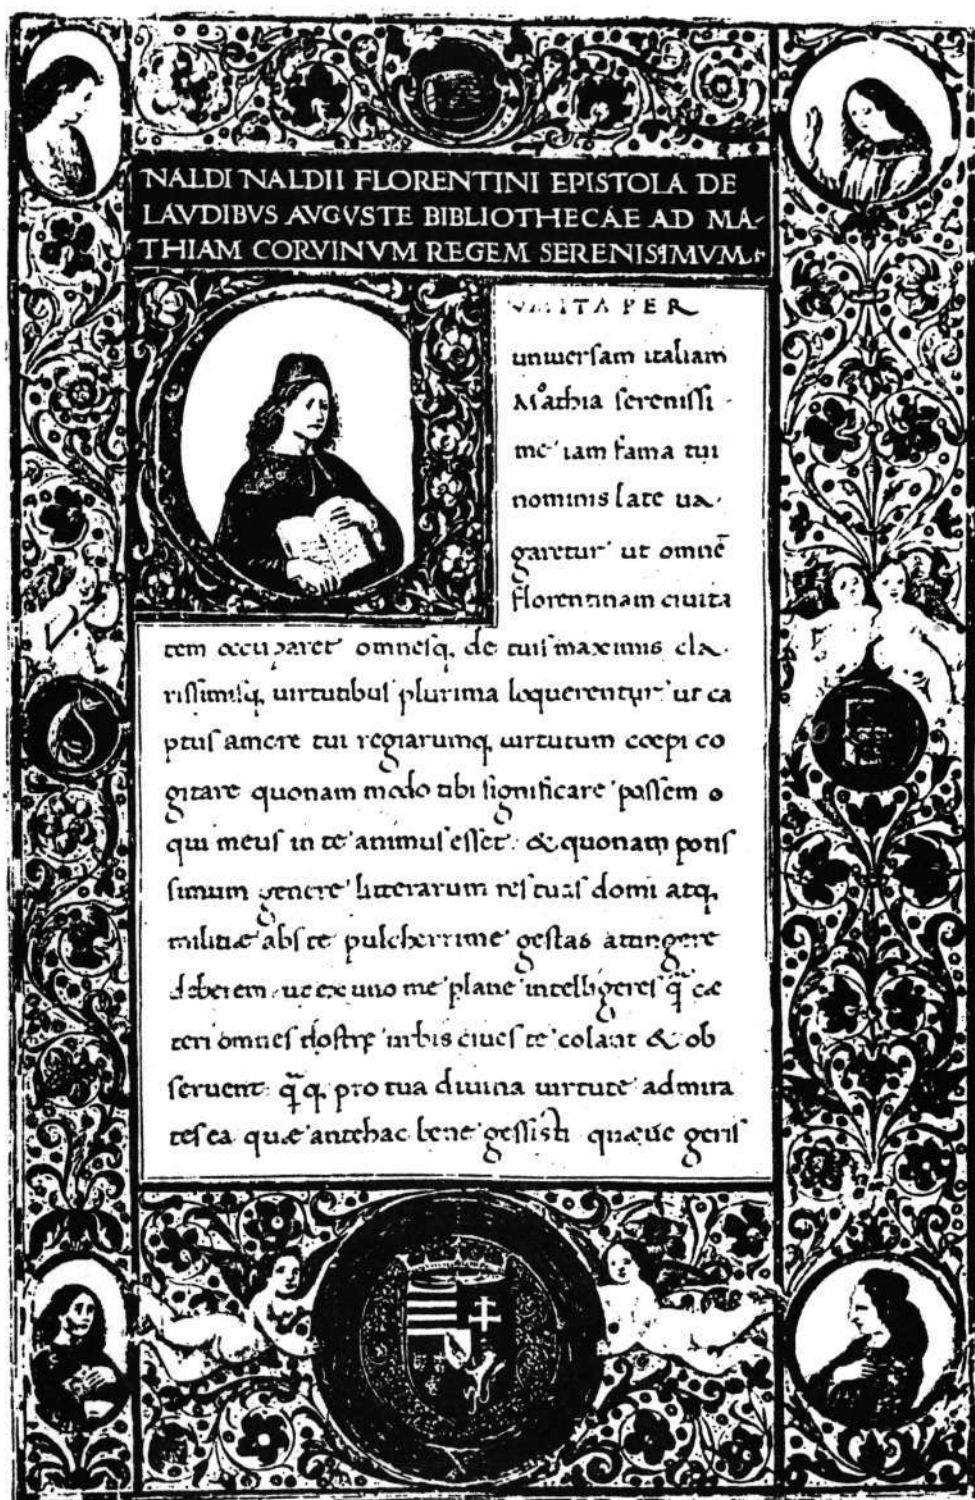 NALDI NALDII FLORENTINI EPISTOLA DE
LAVDIBVS AVGVSTE BIBLIOTHECAE AD MA-
THIAM CORVINVM REGEM SERENISSIMVM
ITA PER
universam italiam
Mathia serenissi-
me iam fama tui
nominis late ua-
garetur ut omnē
florentinam ciuita
tem occuparet omnesq, de tuis maximis cla-
rissimisq, uirtutibus plurima loquerentur ut ca
ptus amore tui regiarumq, uirtutum coepi co
gitare quonam modo tibi significare possem
qui meus in te animus esset: & quonam potis
simum genere litterarum res tuas domi atq,
militiæ abs te pulcherrime gestas attingere
deberem ut ex uno me plane intelligeres q̄ cæ
teri omnes nostrę urbis ciues te colant & ob
seruent q̄q, pro tua diuina uirtute admira
tes ea quæ antehac bene gessisti quæue geris